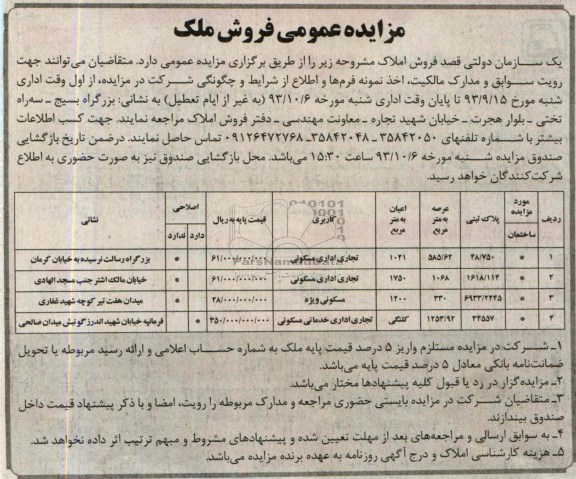 مزایده عمومی فروش ملک
یک سازمان دولتی قصد فروش املاک مشروحه زیر را از طریق برگزاری مزایده عمومی دارد. متقاضیان می‌توانند جهت
رویت سوابق و مدارک مالکیت، اخذ نمونه فرم‌ها و اطلاع از شرایط و چگونگی شرکت در مزایده، از اول وقت اداری
شنبه مورخ ۹۳/۹/۱۵ تا پایان وقت اداری شنبه مورخه ۹۳/۱۰/۶ (به غیر از ایام تعطیل) به نشانی: بزرگراه بسیج ـ سه‌راه
تختی ـ بلوار هجرت ـ خیابان شهید تجاره ـ معاونت مهندسی ـ دفتر فروش املاک مراجعه نمایند. جهت کسب اطلاعات
بیشتر با شماره تلفنهای ۳۵۸۴۲۰۵۰ ـ ۳۵۸۴۲۰۴۸ـ ۰۹۱۲۶۴۷۲۷۶۸ تماس حاصل نمایند. درضمن تاریخ بازگشایی
صندوق مزایده شنبه مورخه ۹۳/۱۰/۶ ساعت ۱۵:۳۰ می‌باشد. محل بازگشایی صندوق نیز به صورت حضوری به اطلاع
شرکت‌کنندگان خواهد رسید.
ردیف | مورد مزایده ساختمان | پلاک ثبتی | عرصه به متر مربع | اعیان به متر مربع | کاربری | قیمت پایه به ریال | اصلاحی دارد ندارد | نشانی
۱ | * | ۴۸/۷۵۰ | ۵۸۵/۶۲ | ۱۰۲۱ | تجاری اداری مسکونی | ۶۱/۰۰۰/۰۰۰/۰۰۰ | * | بزرگراه رسالت نرسیده به خیابان کرمان
۲ | * | ۱۶۱۸/۱۱۴ | ۱۰۶۸ | ۱۷۵۰ | تجاری اداری مسکونی | ۶۱/۰۰۰/۰۰۰/۰۰۰ | * | خیابان مالک اشتر جنب مسجد الهادی
۳ | * | ۶۹۳۳/۲۲۲۵ | ۳۳۰ | ۱۲۰۰ | مسکونی ویژه | ۲۸/۰۰۰/۰۰۰/۰۰۰ | * | میدان هفت تیر کوچه شهید غفاری
۴ | * | ۲۴۵۵۷ | ۱۲۵۳/۹۲ | کلنگی | تجاری اداری خدماتی مسکونی | ۳۵۰/۰۰۰/۰۰۰/۰۰۰ | * | فرمانیه خیابان شهید اندرزگو نبش میدان صالحی
۱ـ شرکت در مزایده مستلزم واریز ۵ درصد قیمت پایه ملک به شماره حساب اعلامی و ارائه رسید مربوطه یا تحویل
ضمانت‌نامه بانکی معادل ۵ درصد قیمت پایه می‌باشد.
۲ـ مزایده‌گزار در رد یا قبول کلیه پیشنهادها مختار می‌باشد.
۳ـ متقاضیان شرکت در مزایده بایستی حضوری مراجعه و مدارک مربوطه را رویت، امضا و با ذکر پیشنهاد قیمت داخل
صندوق بیندازند.
۴ـ به سوابق ارسالی و مراجعه‌های بعد از مهلت تعیین شده و پیشنهادهای مشروط و مبهم ترتیب اثر داده نخواهد شد.
۵ـ هزینه کارشناسی املاک و درج آگهی روزنامه به عهده برنده مزایده می‌باشد.